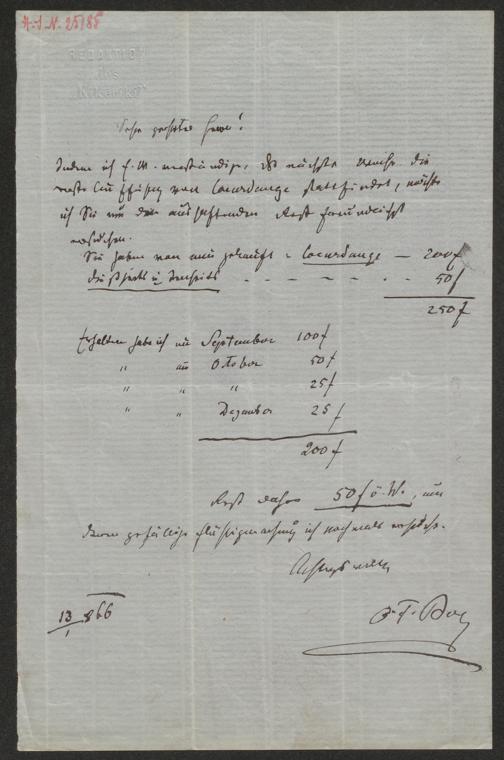 H.I.N. 25185
REDAKTION
des
"Kikeriki"
Sehr geehrter Herr!
Indem ich E. W. verständige, daß nächste Woche die
erste Aufführung von Cocardange stattfindet, möchte
ich Sie um den aushaftenden Rest freundlichst
ersuchen.
Sie haben von mir gekauft " Cocardange — 200 f
Dießseits u Jenseits - - - - - - 50 f
250 f
Erhalten habe ich im September 100 f
" im Oktober 50 f
" " " 25 f
" " Dezember 25 f
200 f
Rest daher 50 f ö. W., um
deren gefällige Flüssigmachung ich nochmals ersuche.
Achtungsvoll
O. F. Berg
13/1 866